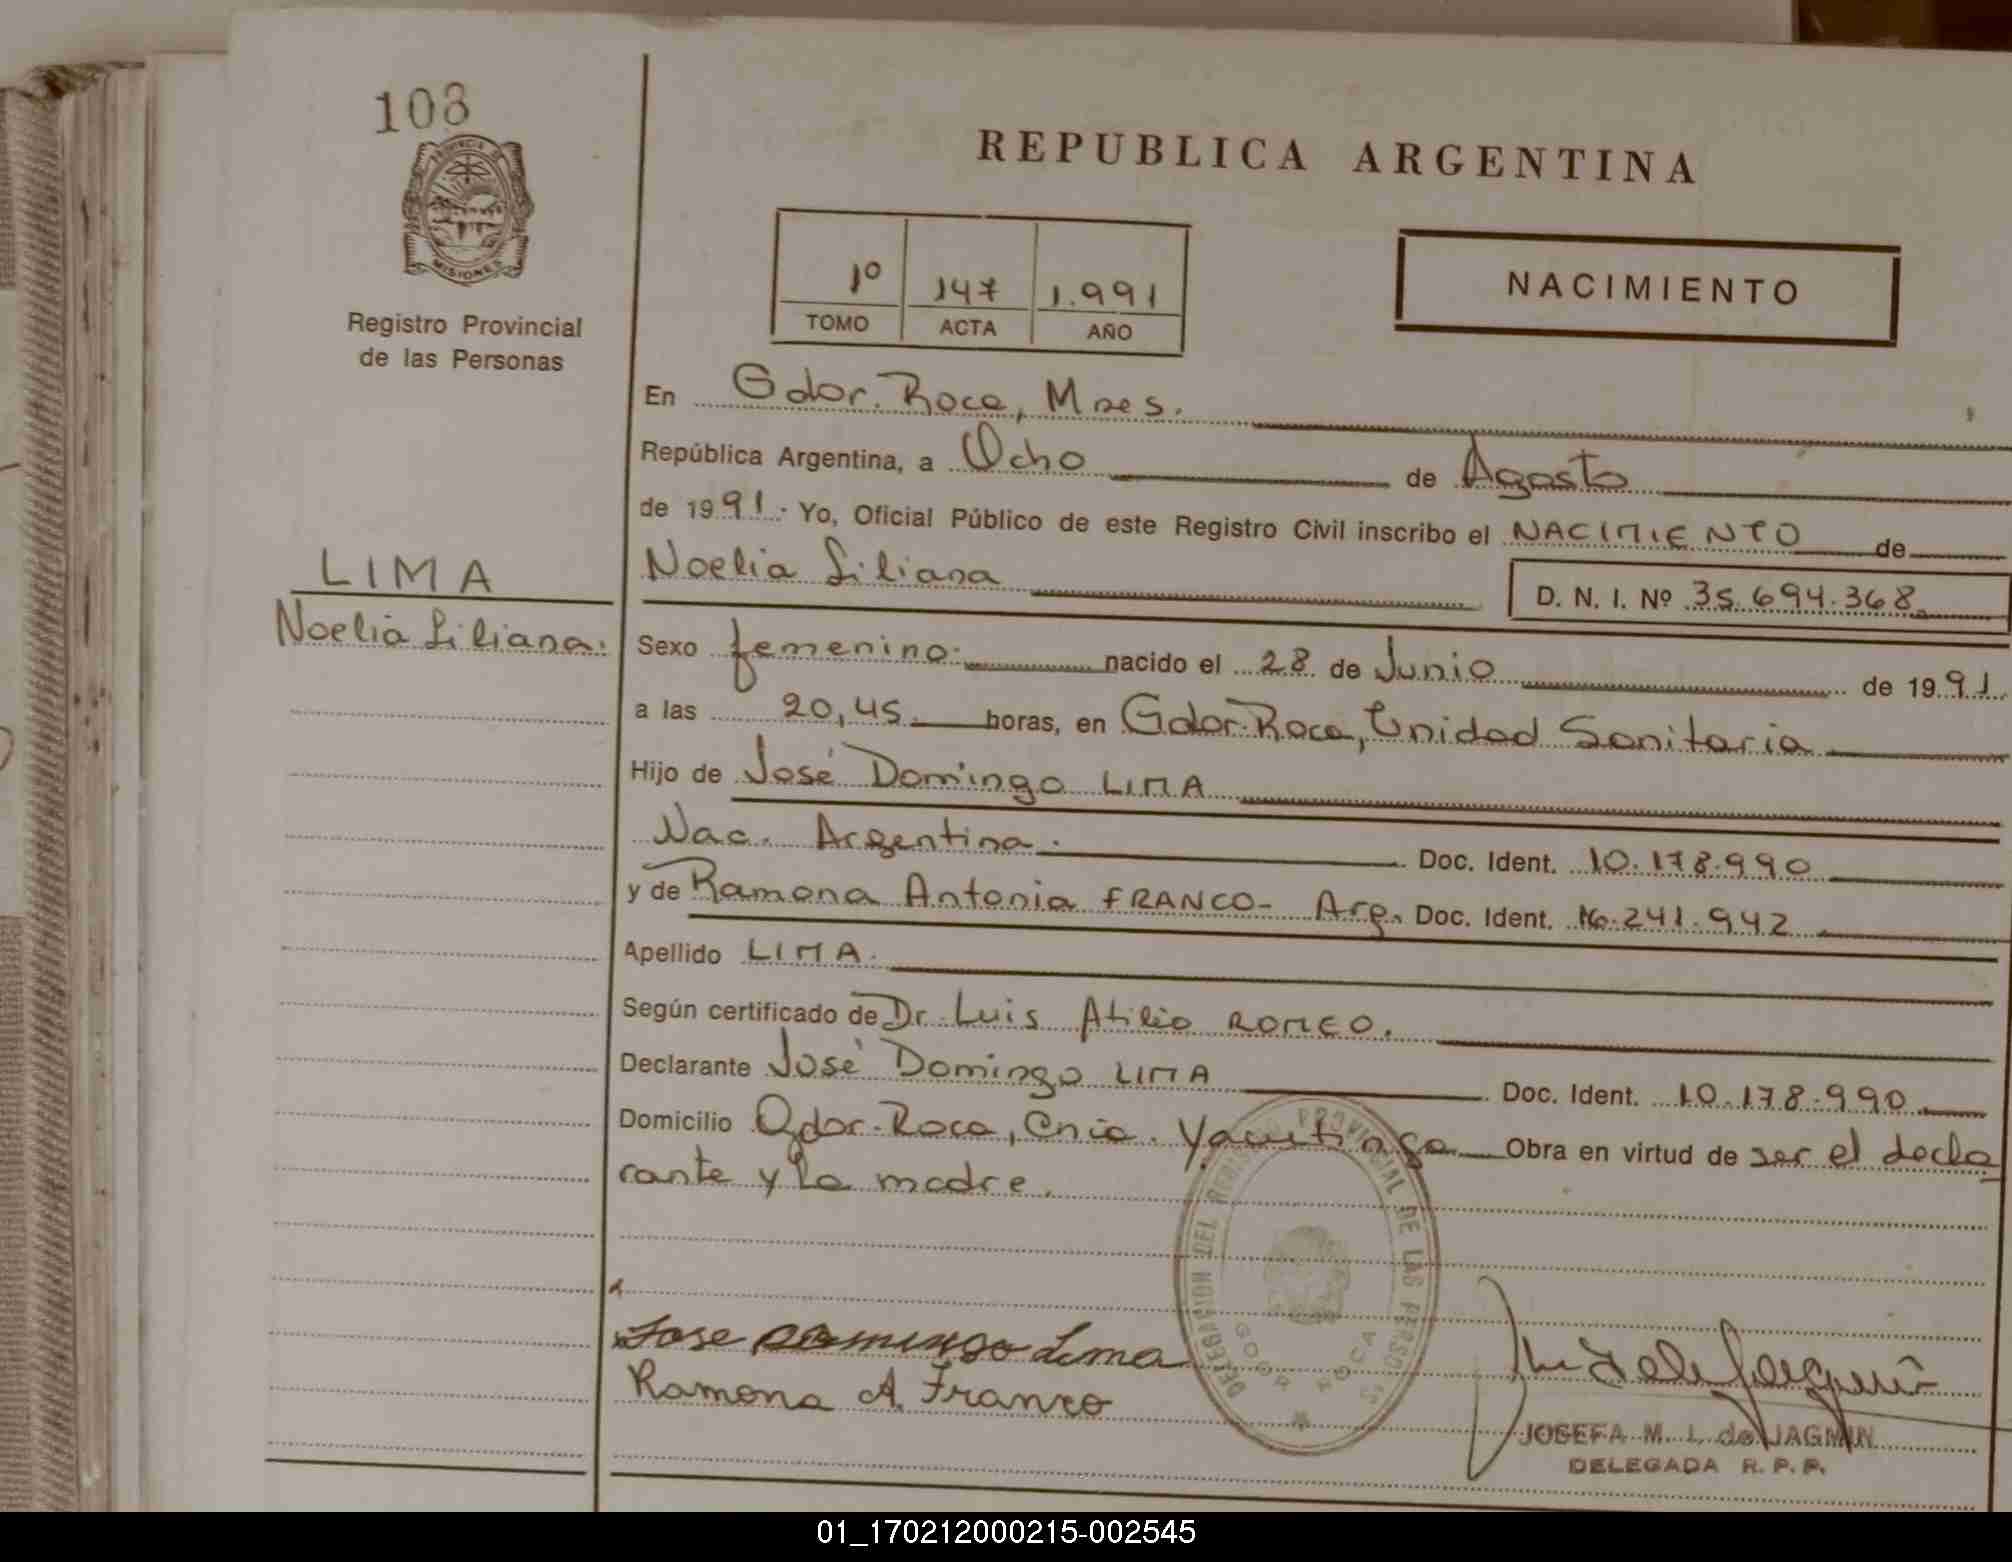 108
PROVINCIA DE
MISIONES
Registro Provincial
de las Personas
REPUBLICA ARGENTINA
1º 147 1.991
TOMO ACTA AÑO
NACIMIENTO
En Gdor. Roca, Mnes.
República Argentina, a Ocho de Agosto
de 1991. Yo, Oficial Público de este Registro Civil inscribo el NACIMIENTO de
LIMA
Noelia Liliana.
Noelia Liliana D. N. I. Nº 35.694.368
Sexo femenino. nacido el 28 de Junio de 1991
a las 20,45 horas, en Gdor. Roca, Unidad Sanitaria
Hijo de José Domingo LIMA
Nac. Argentina. Doc. Ident. 10.178.990
y de Ramona Antonia FRANCO- Arg. Doc. Ident. 16.241.942
Apellido LIMA.
Según certificado de Dr. Luis Atilio ROMEO.
Declarante José Domingo LIMA Doc. Ident. 10.178.990
Domicilio Gdor. Roca, Cnia. Yacutinga Obra en virtud de ser el decla
rante y la madre.
DELEGACION DEL REGISTRO PROVINCIAL DE LAS PERSONAS
GDOR ROCA
Jose Domingo Lima
Ramona A. Franco
JOSEFA M. L. de JAGMIN
DELEGADA R. P. P.
01_170212000215-002545